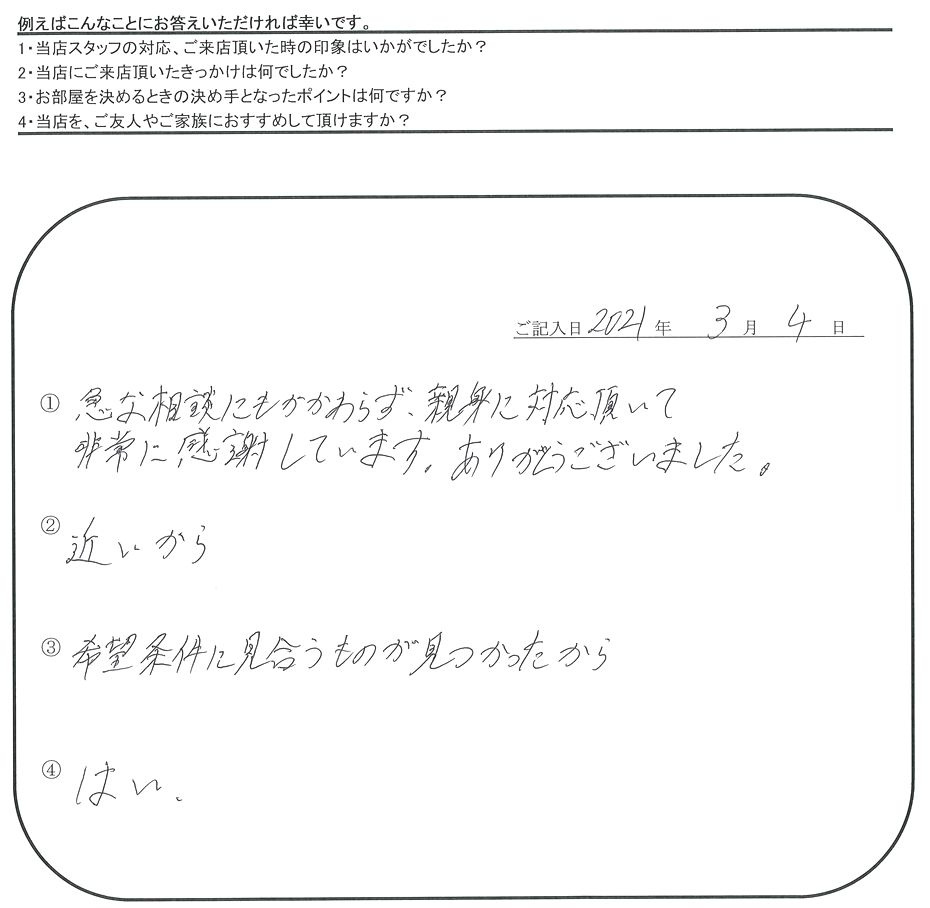 例えばこんなことにお答えいただければ幸いです。
1・当店スタッフの対応、ご来店頂いた時の印象はいかがでしたか？
2・当店にご来店頂いたきっかけは何でしたか？
3・お部屋を決めるときの決め手となったポイントは何ですか？
4・当店を、ご友人やご家族におすすめして頂けますか？
ご記入日 2021 年 3 月 4 日
① 急な相談にもかかわらず、親身に対応頂いて
非常に感謝しています。ありがとうございました。
② 近いから
③ 希望条件に見合うものが見つかったから
④ はい、